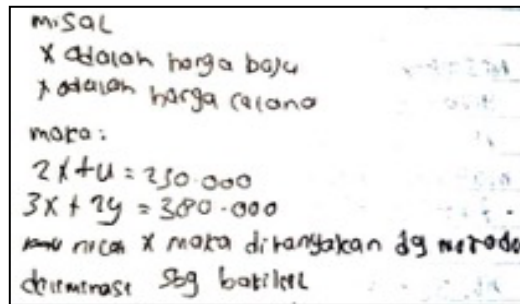 misal
x adalah harga baju
y adalah harga celana
maka:
2x+y = 230.000
3x + 2y = 380.000
x maka ditanyakan dg metode
sbg